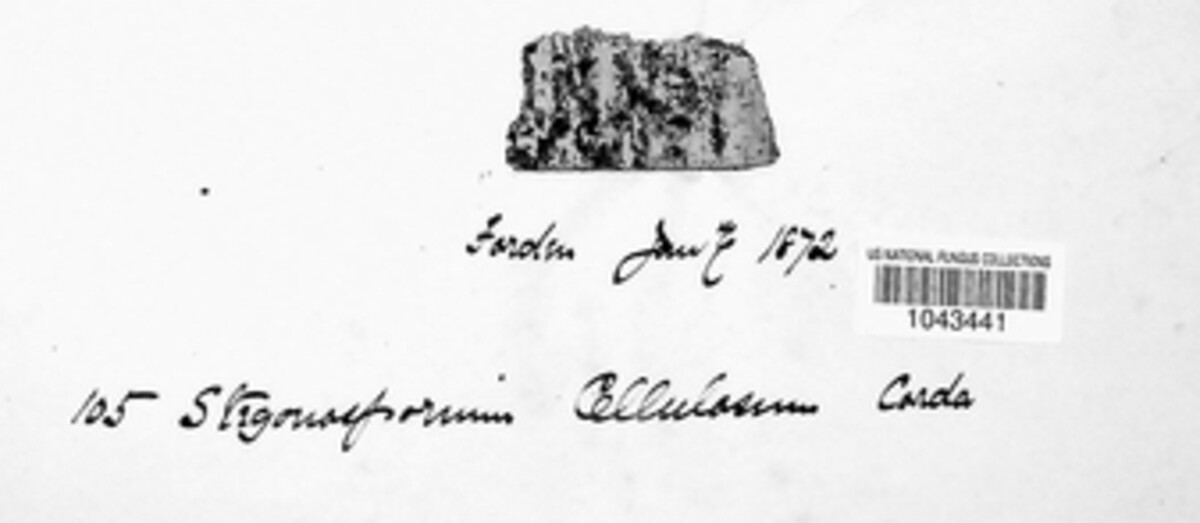 Forden Jan 7 1872
US NATIONAL FUNGUS COLLECTIONS
1043441
105 Stegonosporium Cellulosum Corda